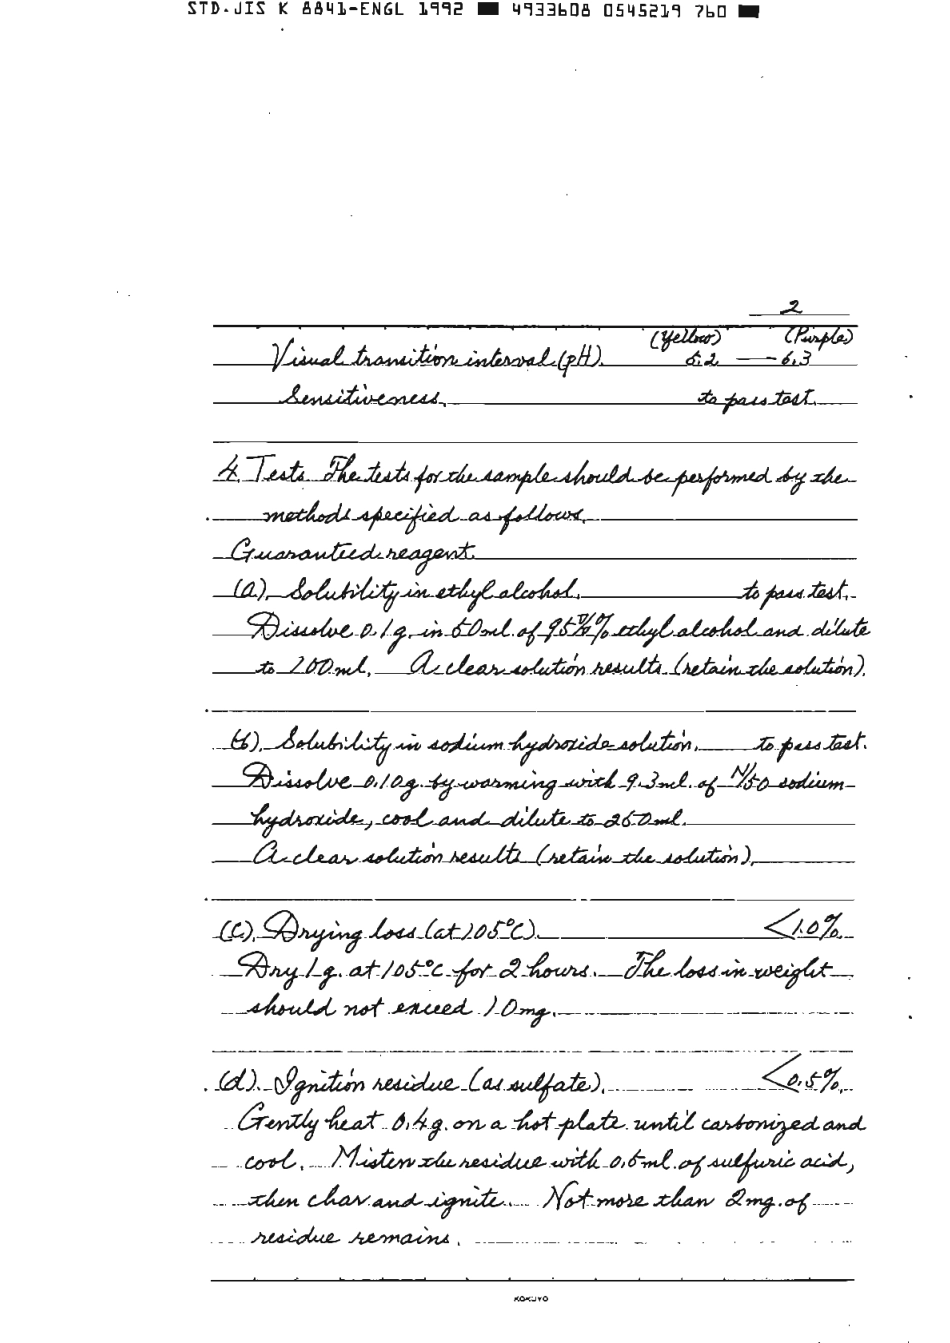 STD.JIS K 8841-ENGL 1992 ■ 4933608 0545219 760 ■
2
(Yellow) (Purple)
Visual transition interval (pH). 5.2 — 6.3
Sensitiveness. to pass test.
4. Tests The tests for the sample should be performed by the
methods specified as follows.
Guaranteed reagent.
(a). Solubility in ethyl alcohol. to pass test.
Dissolve 0.1g. in 50ml. of 95 V/V% ethyl alcohol and dilute
to 100ml. A clear solution results (retain the solution).
(b). Solubility in sodium hydroxide solution. to pass test.
Dissolve 0.10g. by warming with 9.3ml. of N/50 sodium
hydroxide, cool and dilute to 250ml.
A clear solution results (retain the solution).
(c). Drying loss (at 105°C). <1.0%
Dry 1g. at 105°C for 2 hours. The loss in weight
should not exceed 10mg.
(d). Ignition residue (as sulfate). <0.5%
Gently heat 0.4g. on a hot plate until carbonized and
cool. Misten the residue with 0.5ml. of sulfuric acid,
then char and ignite. Not more than 2mg. of
residue remains.
KOKUYO